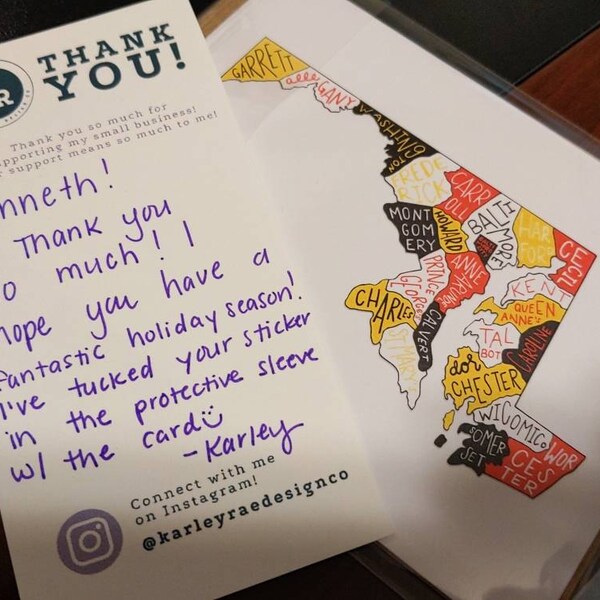 R
THANK
YOU!
Thank you so much for
supporting my small business!
r support means so much to me!
nneth!
Thank you
o much! I
hope you have a
fantastic holiday season!
I've tucked your sticker
in the protective sleeve
w/ the card
-Karley
Connect with me
on Instagram!
@karleyraedesignco
GARRETT
alle
GANY
WASHING
TON
FREDE
RICK
CARR
OLL
BALTI
MORE
HAR
FORD
CECIL
MONT
GOM
ERY
HOWARD
ANNE
ARUNDEL
PRINCE
GEORGES
KENT
QUEEN
ANNE'S
CHARLES
CALVERT
ST MARYS
TAL
BOT
CAROLINE
dor
CHESTER
WICOMICO
SOMER
SET
WOR
CES
TER